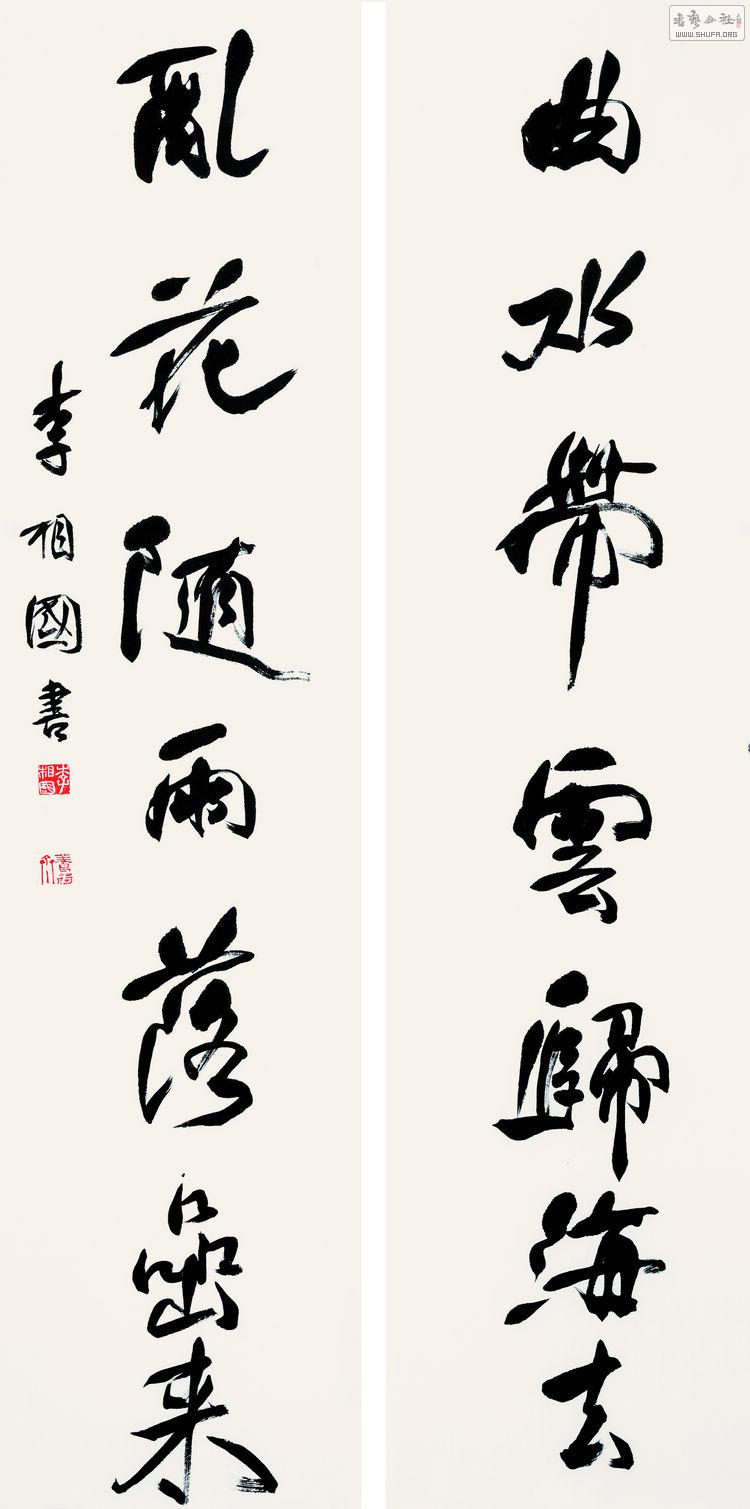 曲水帶雲歸海去
亂花随雨落嵒来
李相國書
李相國
書藝公社
WWW.SHUFA.ORG